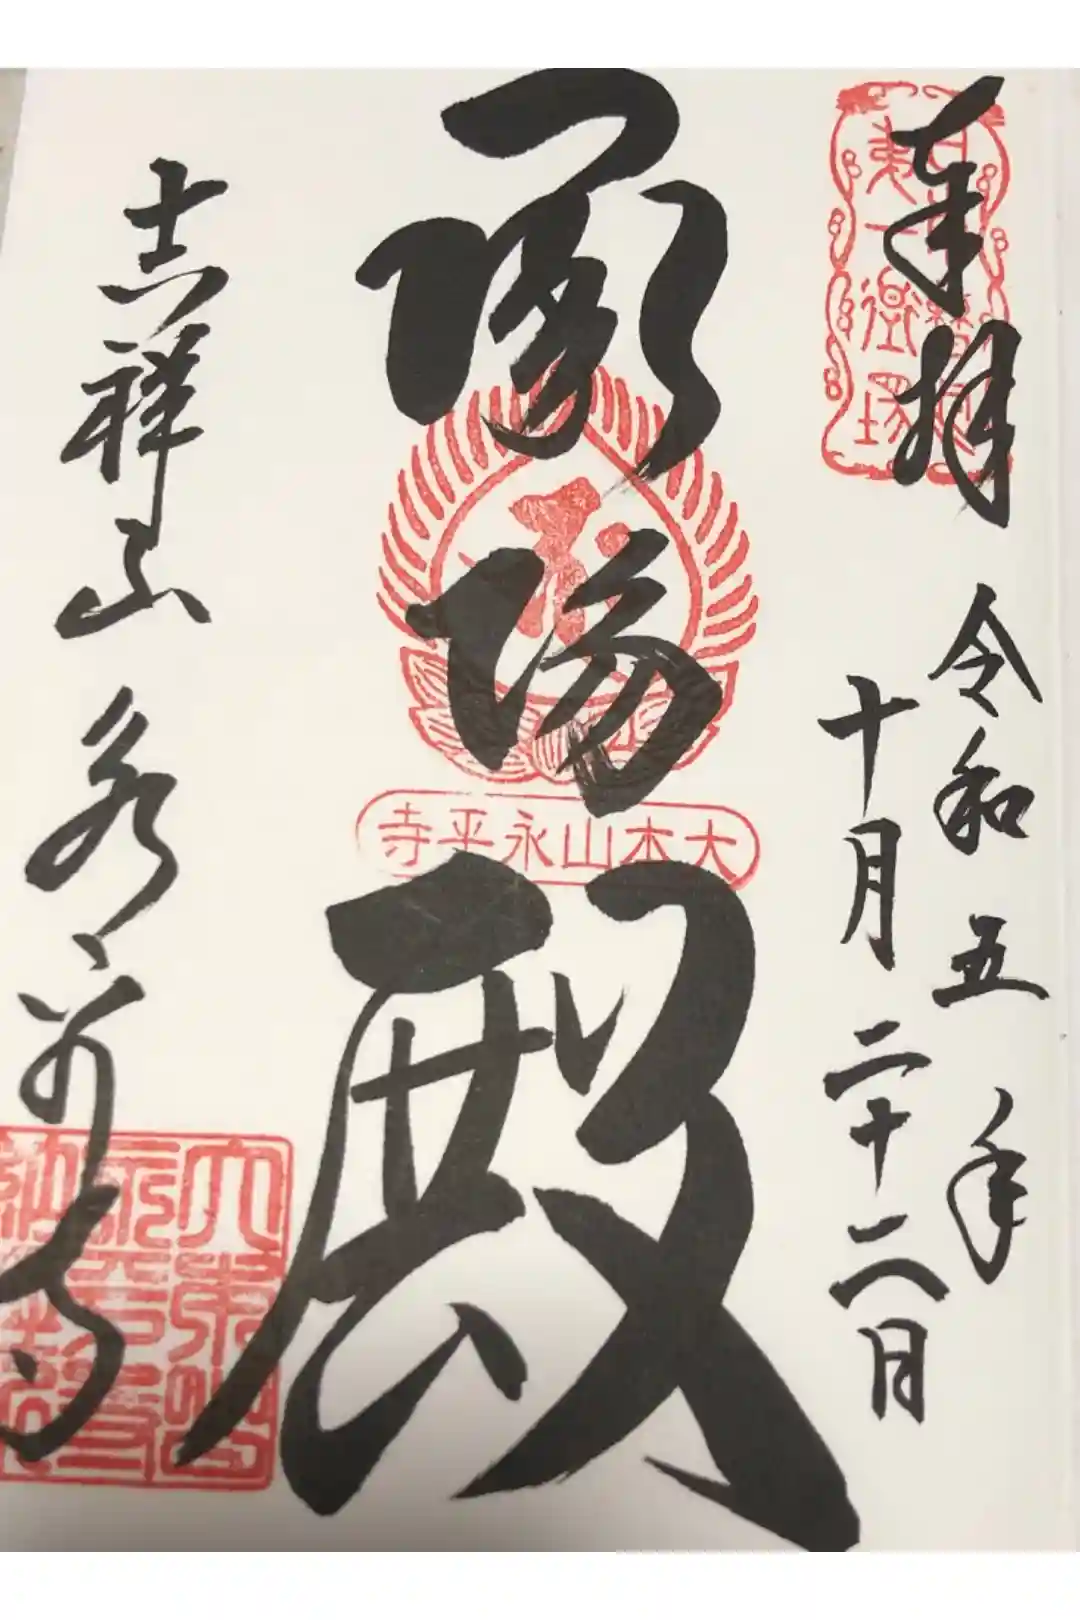 奉拝
令和五年
十月二十二日
承陽殿
大本山永平寺
吉祥山永平寺